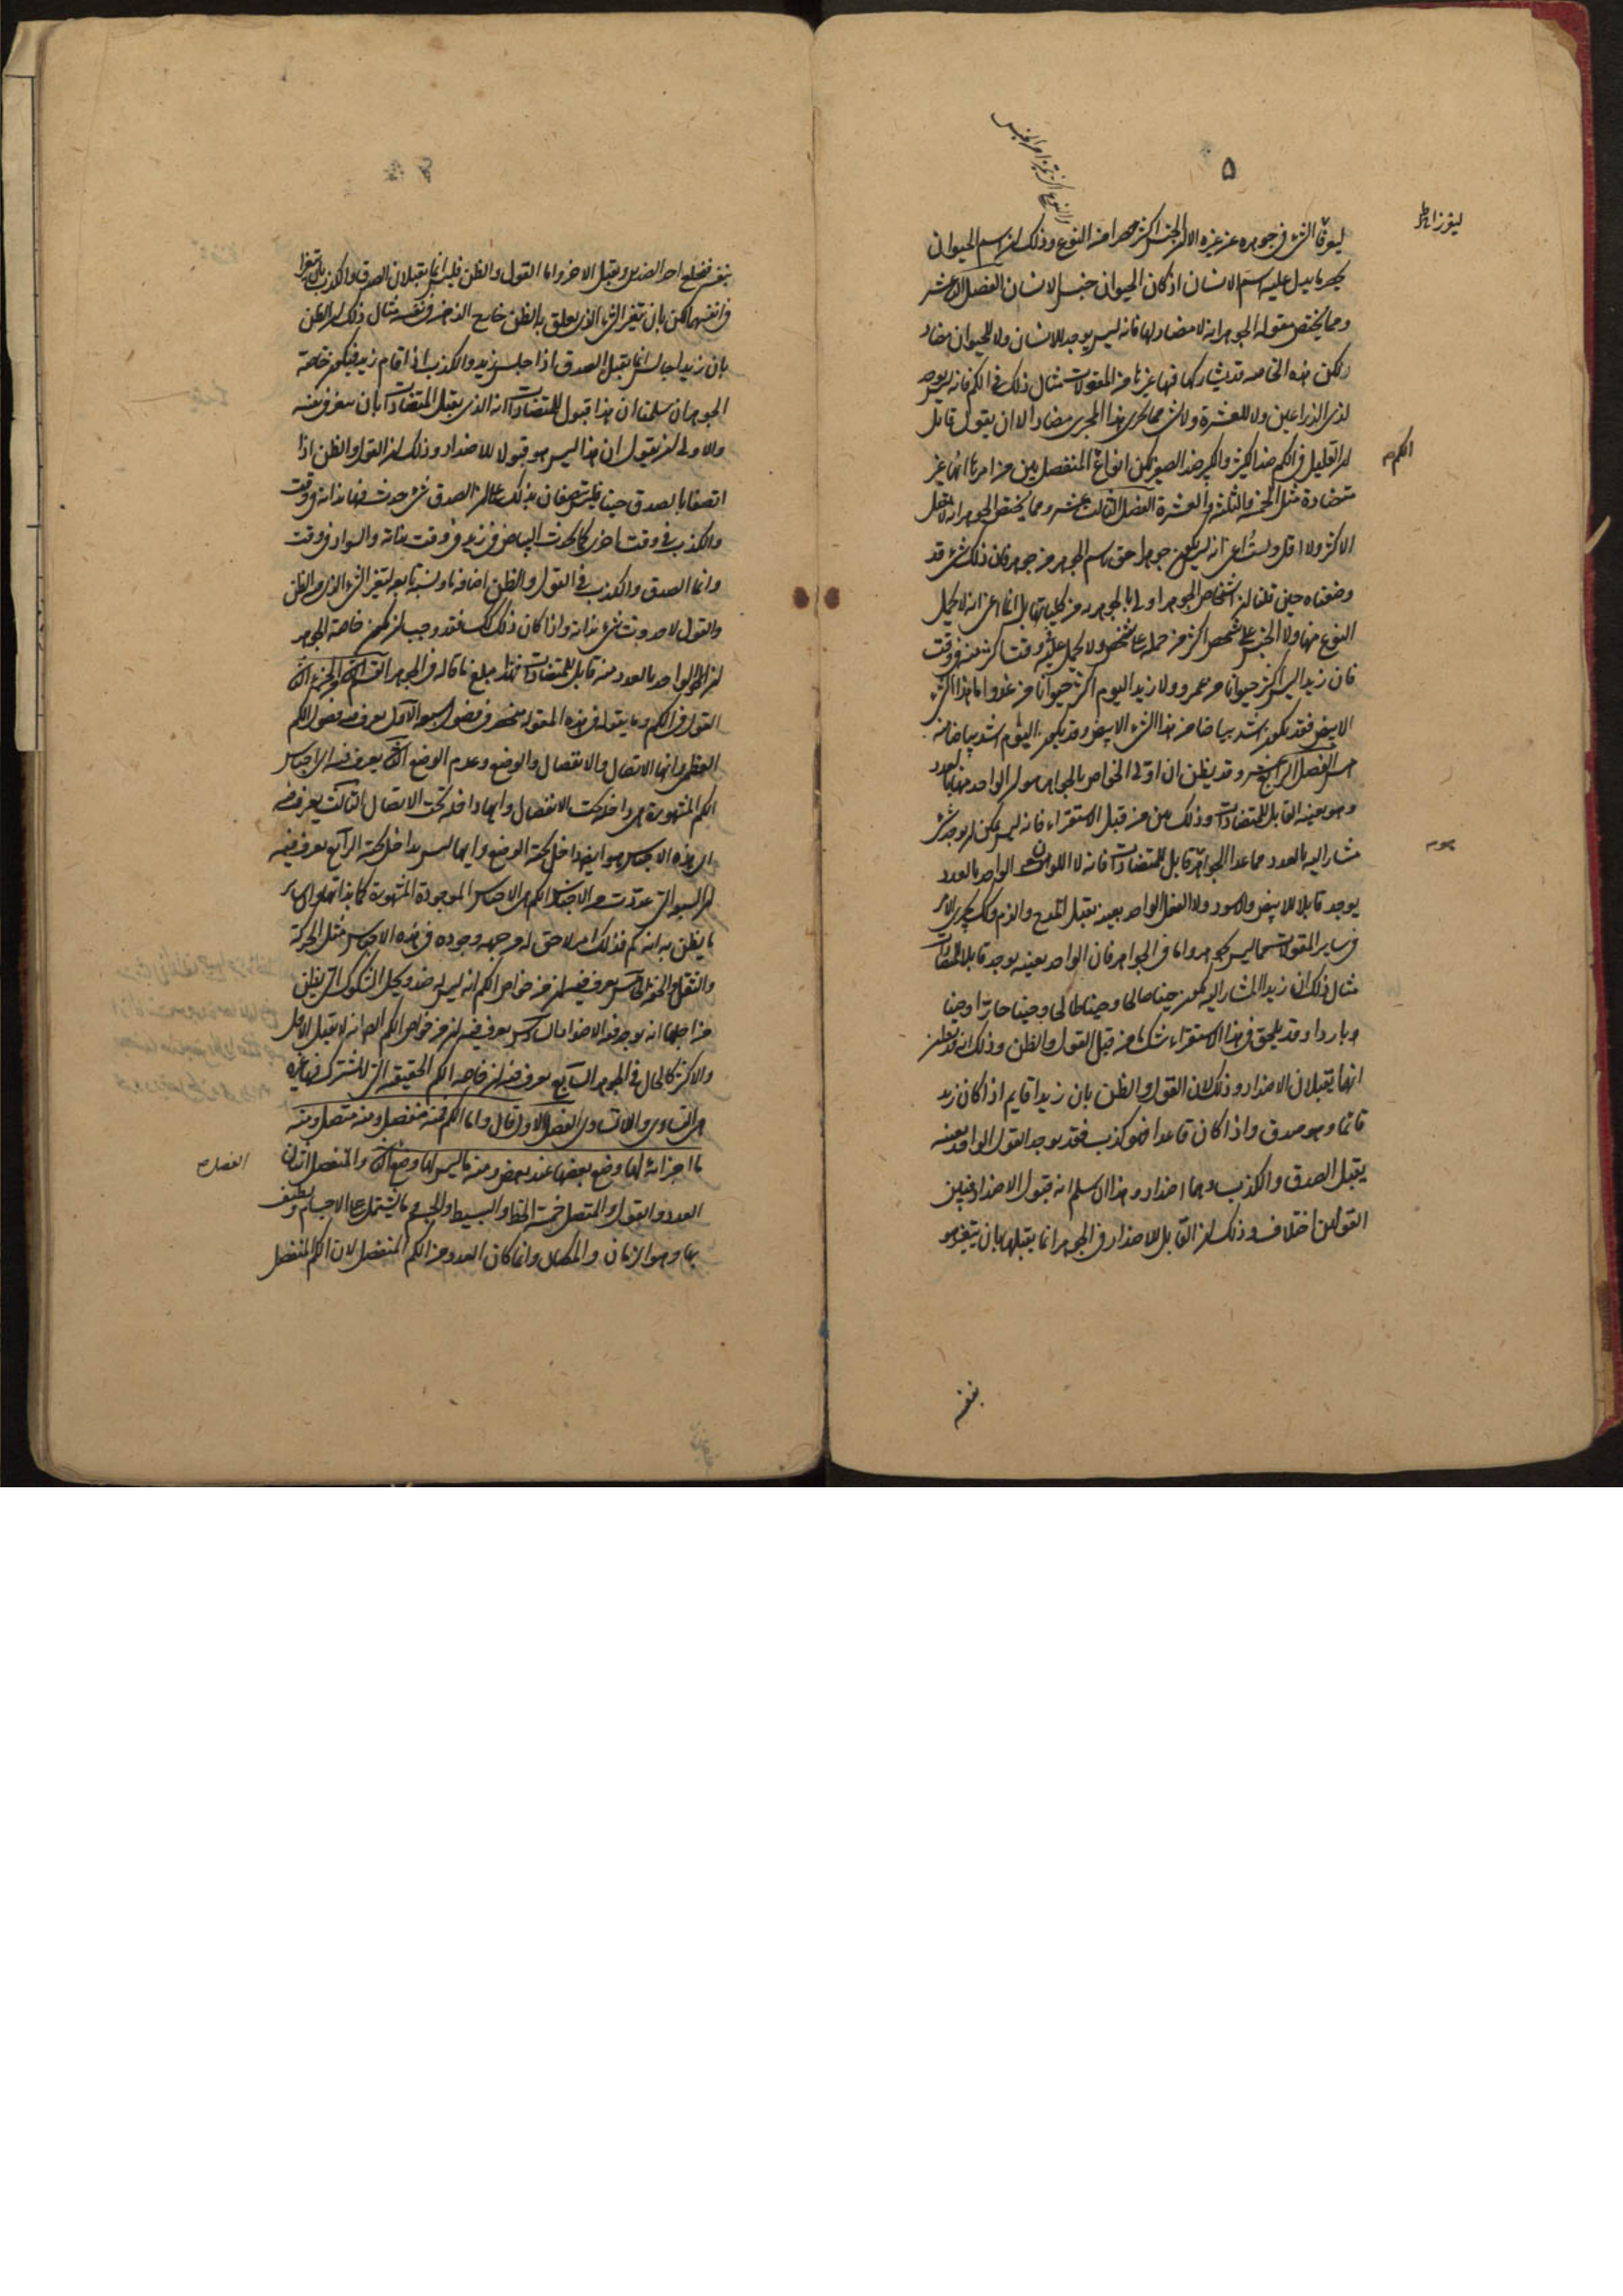 ٥
ليفرزا بها
ليفرقا الشيء في جوهره عن غيره الا ان الجنس اكثر حصرا من النوع وذلك ان اسم الحيوان
يحصر ما يدل عليه اسم الانسان اذ كان الحيوان جنس الانسان الفصل الثاني عشر
ومما يختص مقولة الجوهر انه لا مضاد لها فانه ليس يوجد للانسان ولا للحيوان مضاد
ولكن هذه الخاصة قد يشاركها فيها غيرها من المقولات مثال ذلك في الكم فانه ليس يوجد
لذي الذراعين ولا للعشرة ولا شيء مما يجري هذا المجرى مضاد الا ان يقول قائل
ان القليل في الكم ضد الكثير والكبير ضد الصغير لكن انواع الكم المنفصل بين من امرها انها غير
متضادة مثل الخمسة والثلثة والعشرة الفصل الثالث عشر ومما يختص الجوهر انه لا يقبل
الاكثر ولا الاقل ولست اعني انه ليس يكون جوهر احق باسم الجوهر من جوهر فان ذلك شيء قد
وضعناه حين قلنا ان اشخاص الجوهر اولى بالجوهرية من كلياتها بل انما اعني انه لا يحمل
النوع منها ولا الجنس على شخص اكثر من حمله على شخص ولا يحمل عليه في وقت اكثر منه في وقت
فان زيدا ليس اكثر حيوانا من عمرو ولا زيد اليوم اكثر حيوانا من غد واما هذا الشيء
الابيض فقد يكون اشد بياضا من هذا الشيء الابيض وقد يكون اليوم اشد بياضا منه
امس الفصل الرابع عشر وقد يظن ان اولى الخواص بالجواهر هو ان الواحد منها بالعدد
وهو بعينه القابل للمتضادات وذلك بين من قبل الاستقراء فانه ليس يمكن ان يوجد شيء
مشار اليه بالعدد مما عدا الجواهر قابل للمتضادات فانه لا اللون الواحد بالعدد
يوجد قابلا للابيض والاسود ولا الفعل الواحد بعينه يقبل المدح والذم وكذلك يجري الامر
في سائر المقولات مما ليس بجوهر واما في الجواهر فان الواحد بعينه يوجد قابلا للمتضادات
مثال ذلك ان زيدا المشار اليه يكون حينا صالحا وحينا طالحا وحينا حارا وحينا
وباردا وقد يلحق في هذا الاستقراء شك ما من قبل القول والظن وذلك انه قد يظن
انهما يقبلان الاضداد وذلك لان القول والظن بان زيدا قايم اذا كان زيد
قائما وهو صدق واذا كان قاعدا فهو كذب فقد يوجد القول الواحد بعينه
يقبل الصدق والكذب وهما اضداد وهذا ان سلم انه قبول الاضداد فبين
القولين اختلاف وذلك ان القابل للاضداد في الجوهر انما يقبلها بان يتغير هو
بنفسه
بنفسه فيخلع احد الضدين ويقبل الاخر واما القول والظن فليس انما يقبلان الصدق والكذب بان تغيرا
في انفسهما لكن بان تغير الشيء الذي يعلق به الظن خارج الذهن في نفسه مثال ذلك ان الظن
بان زيدا جالس انما يقبل الصدق اذا جلس زيد والكذب اذا قام زيد فيكون خاصة
الجوهر ان سلمنا ان هذا قبول للمتضادات انه الذي يقبل المتضادات بان يتغير في نفسه
والاولى ان يقول ان هذا ليس هو قبولا للاضداد وذلك ان القول والظن اذا
اتصفا بالصدق حينا فليس يتصفان بذلك على ان الصدق شيء حدث فيهما بذاته في وقت
والكذب في وقت اخر كما يحدث البياض في زيد في وقت بذاته والسواد في وقت
وانما الصدق والكذب في القول والظن اضافة ما ونسبة تابعة لتغير الشيء الذي فيه الظن
والقول لا حدوث شيء بذاته واذا كان ذلك كذلك فقد وجب ان يكون خاصة الجوهر
ان الواحد بالعدد منه قابل للمتضادات فهذا مبلغ ما قاله في الجوهر القسم الثاني من الجزء الثاني
القول في الكم وما يقوله في هذه المقولة منحصر في فصول سبعة الاول يعرف فيه فصول الكم
العظمى وانها الاتصال والانفصال والوضع وعدم الوضع الثاني يعرف فيه اي اجناس
الكم المشهورة هي داخلة تحت الانفصال وايها داخلة تحت الاتصال الثالث يعرف فيه
اي هذه الاجناس هو ايضا داخل تحت الوضع وايها ليس بداخل تحته الرابع يعرف فيه
ان السبعة التي عددت من الاجناس الكم هي الاجناس الموجودة المشهورة كما بذاتها وان سائر
ما يظن به انه كم فذلك امر لاحق له من جهة وجوده في هذه الاجناس مثل الحركة
والثقل والخفة الخامس يعرف فيه ان من خواص الكم انه ليس له ضد ويحل الشكوك التي يظن
من اجلها انه يوجد فيه الاضداد السادس يعرف فيه ان من خواص الكم ايضا انه لا يقبل الاقل
والاكثر كالحال في الجوهر السابع يعرف فيه ان خاصة الكم الحقيقية التي لا يشترك فيها غيره
هي التساوي والاتساوي الفصل الاول قال واما الكم فمنه منفصل ومنه متصل ومنه
الفصل
ما اجزائه لها وضع بعضها عند بعض ومنه ما ليس لها وضع الثاني والمنفصل اثنان
العدد والقول والمتصل خمسة الخط والبسيط والجسم وما يشتمل على الاجسام ويطيف
بها وهو الزمان والمكان وانما كان العدد من الكم المنفصل لان الكم المنفصل